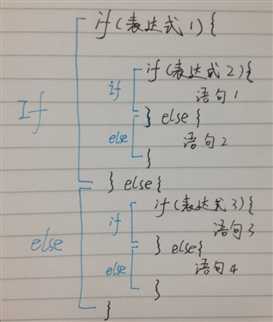 if(表达式1){
if(表达式2){
if
语句1
If
} else {
else
语句2
}
} else {
if(表达式3){
if
语句3
else
} else{
else
语句4
}
}